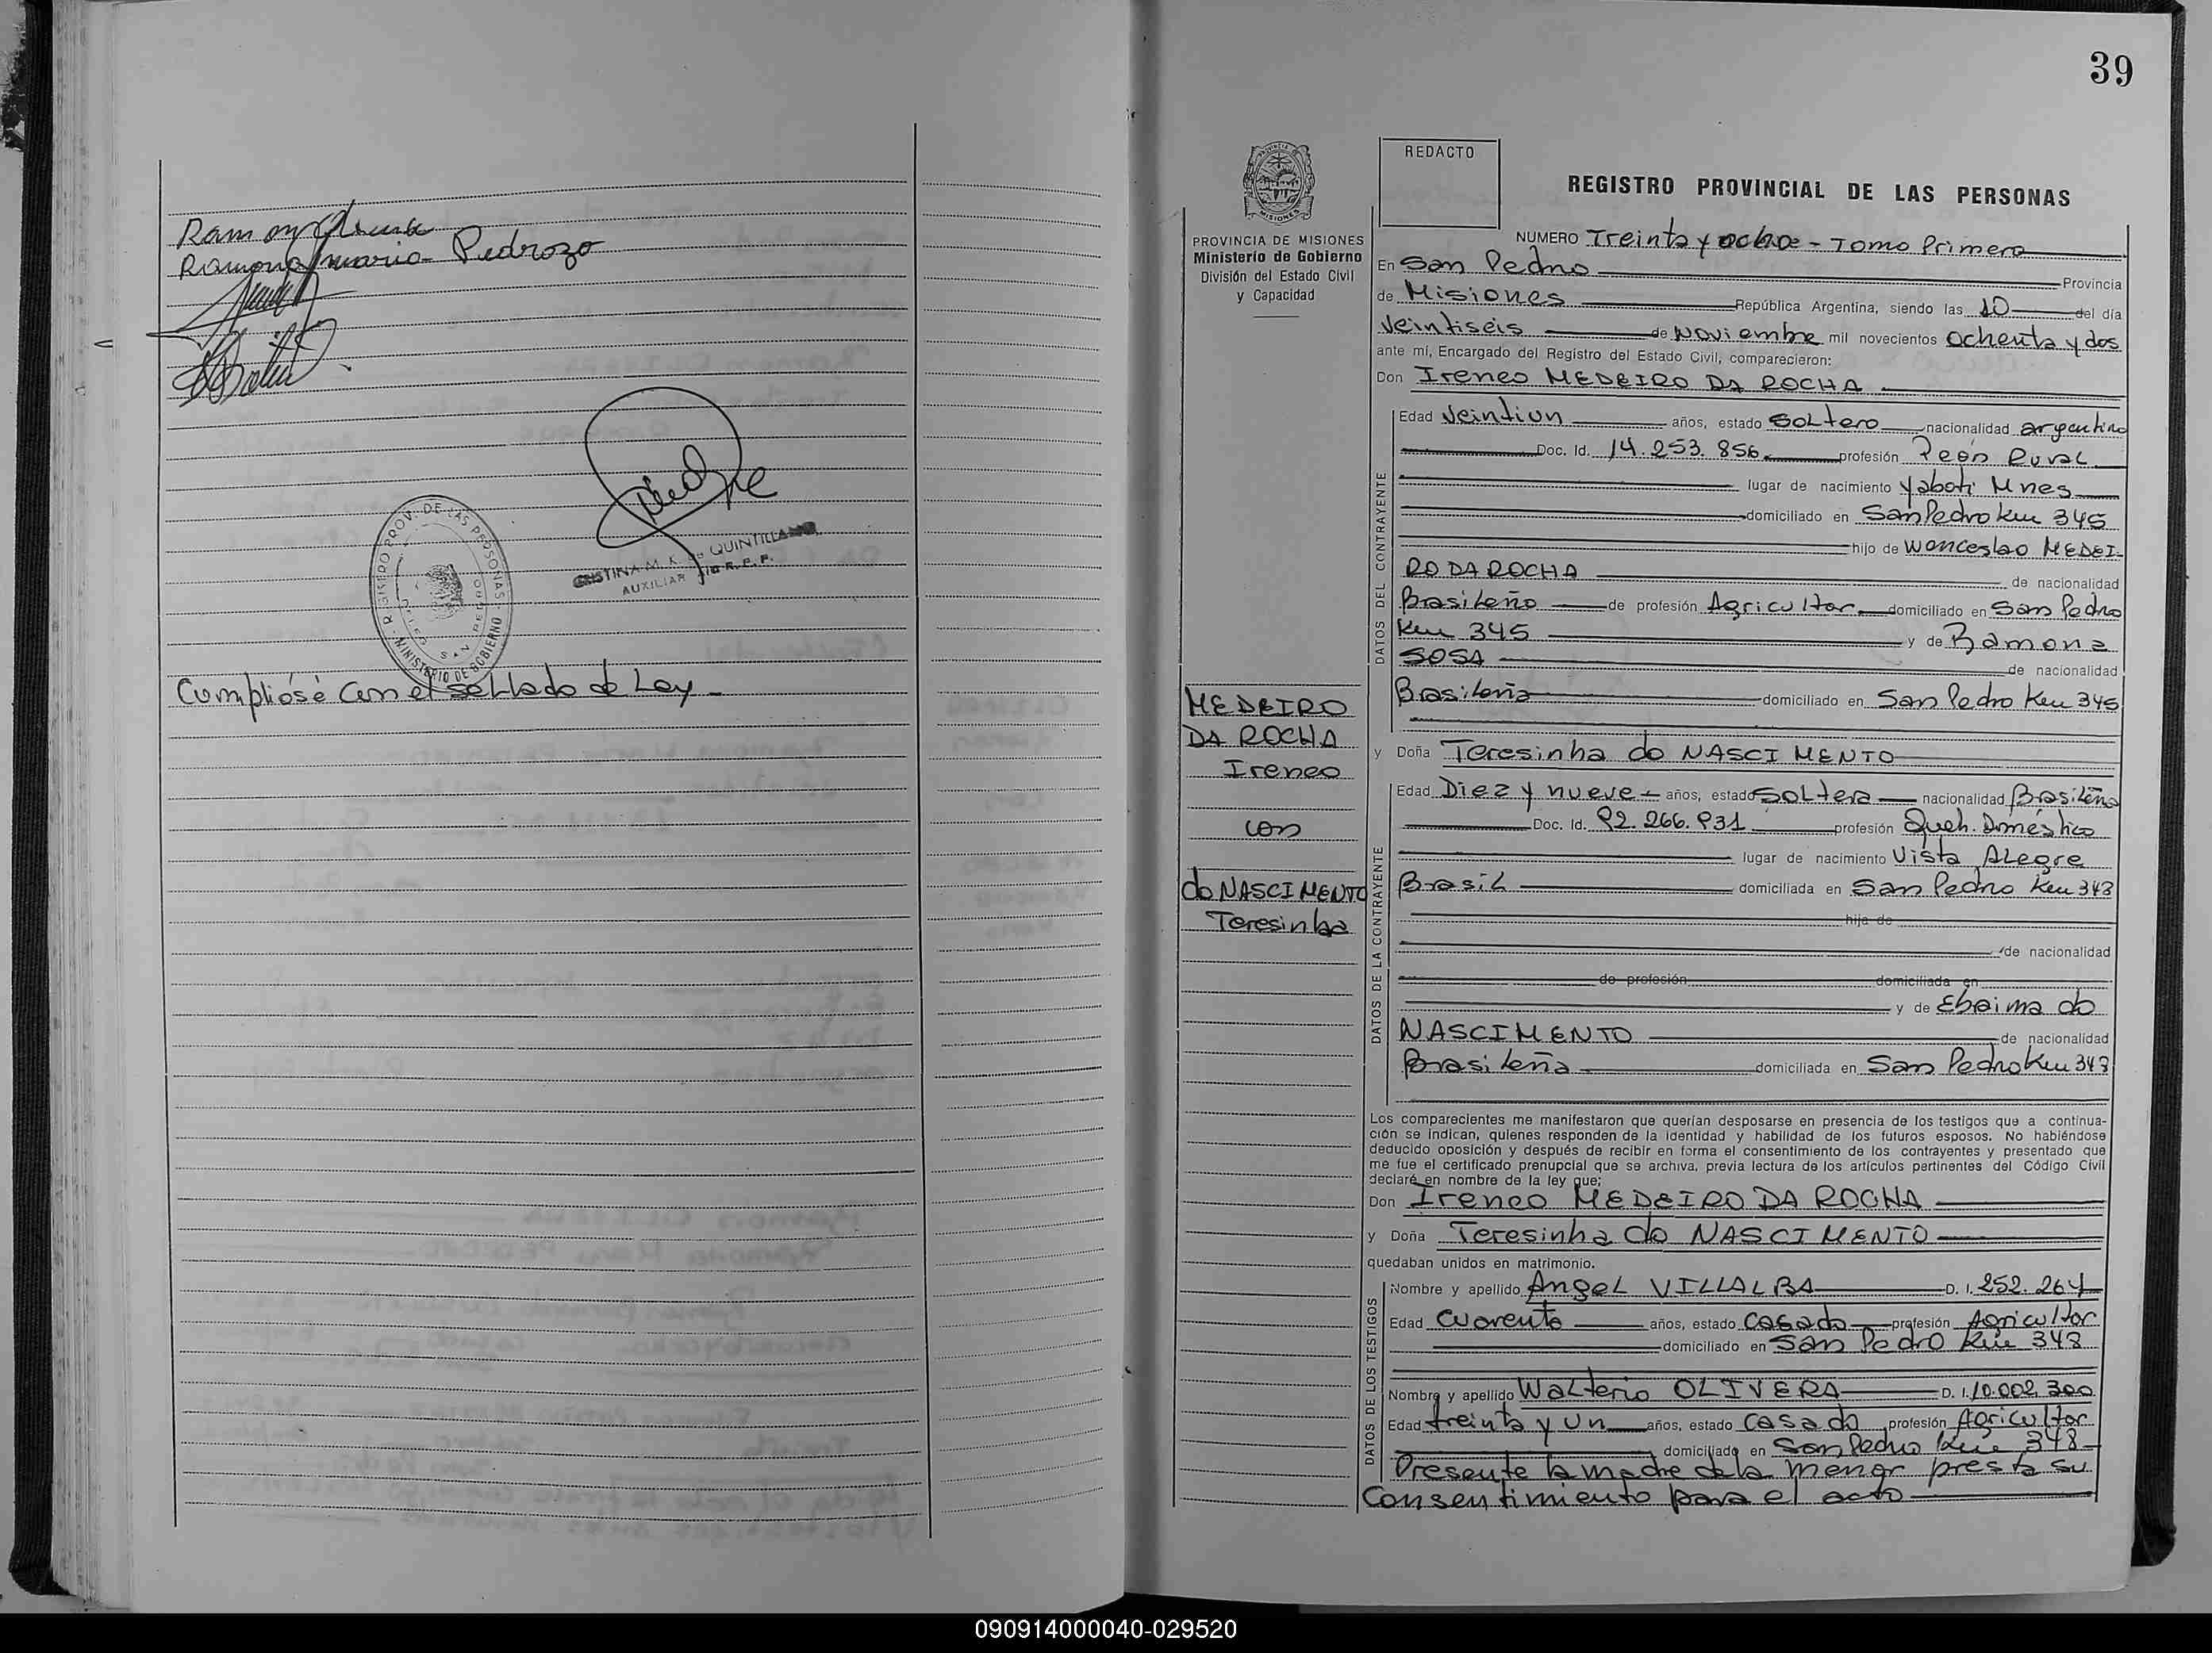 Ramona Maria Pedrozo
CRISTINA M. K. de QUINTILLAN
AUXILIAR
REGISTRO PROV. DE LAS PERSONAS
MINISTERIO DE GOBIERNO
Cumpliósé con el sellado de Ley -
39
REDACTO
REGISTRO PROVINCIAL DE LAS PERSONAS
PROVINCIA DE MISIONES
Ministerio de Gobierno
División del Estado Civil
y Capacidad
NUMERO Treinta y ocho - Tomo Primero
En San Pedro Provincia
de Misiones República Argentina, siendo las 10 del día
Veintiséis de Noviembre mil novecientos Ochenta y dos
ante mí, Encargado del Registro del Estado Civil, comparecieron:
Don Ireneo MEDEIRO DA ROCHA
DATOS DEL CONTRAYENTE
Edad Veintiun años, estado Soltero nacionalidad argentino
Doc. Id. 14.253.856 profesión Peón Rural
lugar de nacimiento Yaboti Mnes
domiciliado en San Pedro Km 345
hijo de Wenceslao MEDEI-
RO DA ROCHA de nacionalidad
Brasileño de profesión Agricultor domiciliado en San Pedro
Km 345 y de Ramona
SOSA de nacionalidad
Brasileña domiciliado en San Pedro Km 345
MEDEIRO
DA ROCHA
Ireneo
con
do NASCIMENTO
Teresinha
y Doña Teresinha do NASCIMENTO
DATOS DE LA CONTRAYENTE
Edad Diez y nueve años, estado Soltera nacionalidad Brasileña
Doc. Id. 92.266.931 profesión Queh. Doméstico
lugar de nacimiento Vista Alegre
Brasil domiciliada en San Pedro Km 343
hija de
de nacionalidad
de profesión domiciliada en
y de Ebraima do
NASCIMENTO de nacionalidad
Brasileña domiciliada en San Pedro Km 343
Los comparecientes me manifestaron que querían desposarse en presencia de los testigos que a continua-
ción se indican, quienes responden de la identidad y habilidad de los futuros esposos. No habiéndose
deducido oposición y después de recibir en forma el consentimiento de los contrayentes y presentado que
me fue el certificado prenupcial que se archiva, previa lectura de los artículos pertinentes del Código Civil
declaré en nombre de la ley que;
Don Ireneo MEDEIRO DA ROCHA
y Doña Teresinha do NASCIMENTO
quedaban unidos en matrimonio.
DATOS DE LOS TESTIGOS
Nombre y apellido Angel VILLALBA D. I. 252.264
Edad Cuarenta años, estado Casado profesión Agricultor
domiciliado en San Pedro Km 348
Nombre y apellido Walterio OLIVERA D. I. 10.002.300
Edad treinta y un años, estado Casado profesión Agricultor
domiciliado en San Pedro Km 348
Presente la madre de la menor presta su
Consentimiento para el acto
090914000040-029520